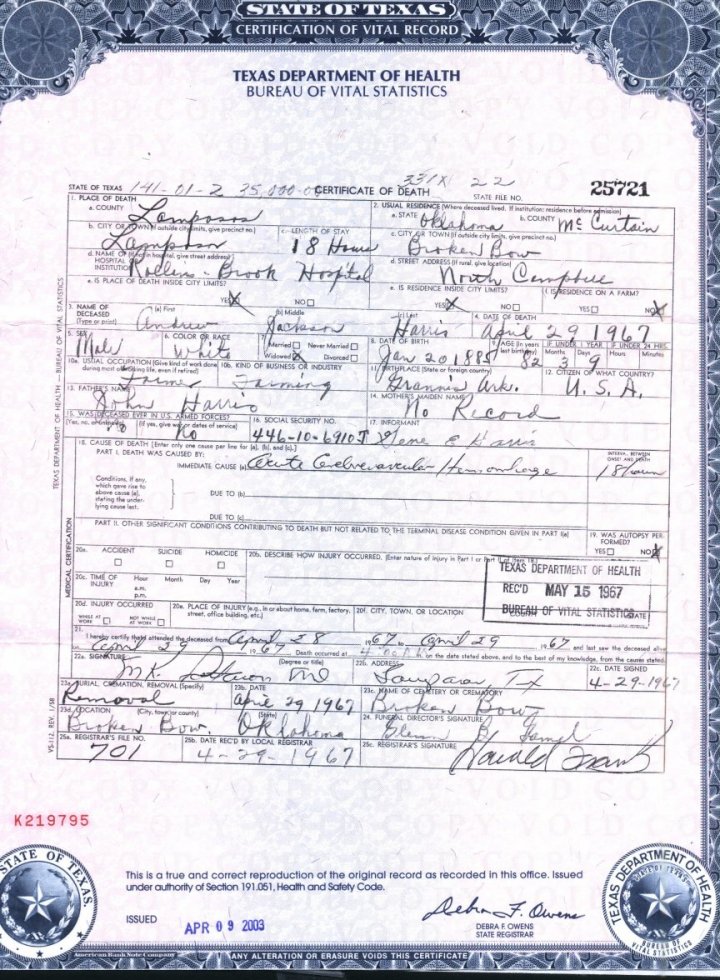 STATE OF TEXAS
CERTIFICATION OF VITAL RECORD
TEXAS DEPARTMENT OF HEALTH
BUREAU OF VITAL STATISTICS
STATE OF TEXAS 141-01-2 35,000-00 CERTIFICATE OF DEATH 331X 22 STATE FILE NO. 25721
1. PLACE OF DEATH
a. COUNTY Lampasas
2. USUAL RESIDENCE (Where deceased lived. If institution: residence before admission)
a. STATE Oklahoma b. COUNTY McCurtain
b. CITY OR TOWN (If outside city limits, give precinct no.) Lampasas
c. LENGTH OF STAY 18 Hours
c. CITY OR TOWN (If outside city limits, give precinct no.) Broken Bow
d. NAME OF (If not in hospital, give street address) HOSPITAL OR INSTITUTION Rollins-Brook Hospital
d. STREET ADDRESS (If rural, give location) North
e. IS PLACE OF DEATH INSIDE CITY LIMITS? YES X NO
e. IS RESIDENCE INSIDE CITY LIMITS? YES X NO
f. IS RESIDENCE ON A FARM? YES NO X
3. NAME OF DECEASED (Type or print)
(a) First Andrew (b) Middle Jackson (c) Last Harris
4. DATE OF DEATH April 29 1967
5. SEX Male
6. COLOR OR RACE White
7. Married Never Married Widowed X Divorced
8. DATE OF BIRTH Jan 20 1885
9. AGE (In years last birthday) 82
IF UNDER 1 YEAR Months 3 Days 9
IF UNDER 24 HRS. Hours Minutes
10a. USUAL OCCUPATION (Give kind of work done during most of working life, even if retired) Farmer
10b. KIND OF BUSINESS OR INDUSTRY Farming
11. BIRTHPLACE (State or foreign country) Grannis Ark.
12. CITIZEN OF WHAT COUNTRY? U.S.A.
13. FATHER'S NAME John Harris
14. MOTHER'S MAIDEN NAME No Record
15. WAS DECEASED EVER IN U.S. ARMED FORCES?
(Yes, no, or unknown) No (If yes, give war or dates of service) No
16. SOCIAL SECURITY NO. 446-10-6910
17. INFORMANT Gene E Harris
18. CAUSE OF DEATH [Enter only one cause per line for (a), (b), and (c).]
PART I. DEATH WAS CAUSED BY:
IMMEDIATE CAUSE (a) Acute Cerebrovascular Hemorrhage
INTERVAL BETWEEN ONSET AND DEATH 18 hours
Conditions, if any, which gave rise to above cause (a), stating the underlying cause last.
DUE TO (b)
DUE TO (c)
PART II. OTHER SIGNIFICANT CONDITIONS CONTRIBUTING TO DEATH BUT NOT RELATED TO THE TERMINAL DISEASE CONDITION GIVEN IN PART I(a)
19. WAS AUTOPSY PERFORMED? YES NO X
20a. ACCIDENT SUICIDE HOMICIDE
20b. DESCRIBE HOW INJURY OCCURRED. (Enter nature of injury in Part I or Part II of item 18.)
20c. TIME OF INJURY Hour a.m. p.m. Month Day Year
TEXAS DEPARTMENT OF HEALTH
REC'D MAY 15 1967
BUREAU OF VITAL STATISTICS
20d. INJURY OCCURRED WHILE AT WORK NOT WHILE AT WORK
20e. PLACE OF INJURY (e.g., in or about home, farm, factory, street, office building, etc.)
20f. CITY, TOWN, OR LOCATION STATE
21. I hereby certify that I attended the deceased from April 28 1967 to April 29 1967 and last saw the deceased alive
on April 29 1967. Death occurred at 4:00 m. on the date stated above, and to the best of my knowledge, from the causes stated.
22a. SIGNATURE M.K. MD (Degree or title)
22b. ADDRESS Lampasas, TX
22c. DATE SIGNED 4-29-1967
23a. BURIAL, CREMATION, REMOVAL (Specify) Removal
23b. DATE April 29 1967
23c. NAME OF CEMETERY OR CREMATORY Broken Bow
23d. LOCATION (City, town, or county) (State) Broken Bow Oklahoma
24. FUNERAL DIRECTOR'S SIGNATURE Glenn B. Gamel
25a. REGISTRAR'S FILE NO. 701
25b. DATE REC'D BY LOCAL REGISTRAR 4-29-1967
25c. REGISTRAR'S SIGNATURE Harold
TEXAS DEPARTMENT OF HEALTH — BUREAU OF VITAL STATISTICS
MEDICAL CERTIFICATION
VS-112, REV. 1/58
K219795
This is a true and correct reproduction of the original record as recorded in this office. Issued
under authority of Section 191.051, Health and Safety Code.
ISSUED APR 09 2003
Debra F. Owens
DEBRA F. OWENS
STATE REGISTRAR
STATE OF TEXAS
TEXAS DEPARTMENT OF HEALTH
BUREAU OF VITAL STATISTICS
American Bank Note Company
ANY ALTERATION OR ERASURE VOIDS THIS CERTIFICATE